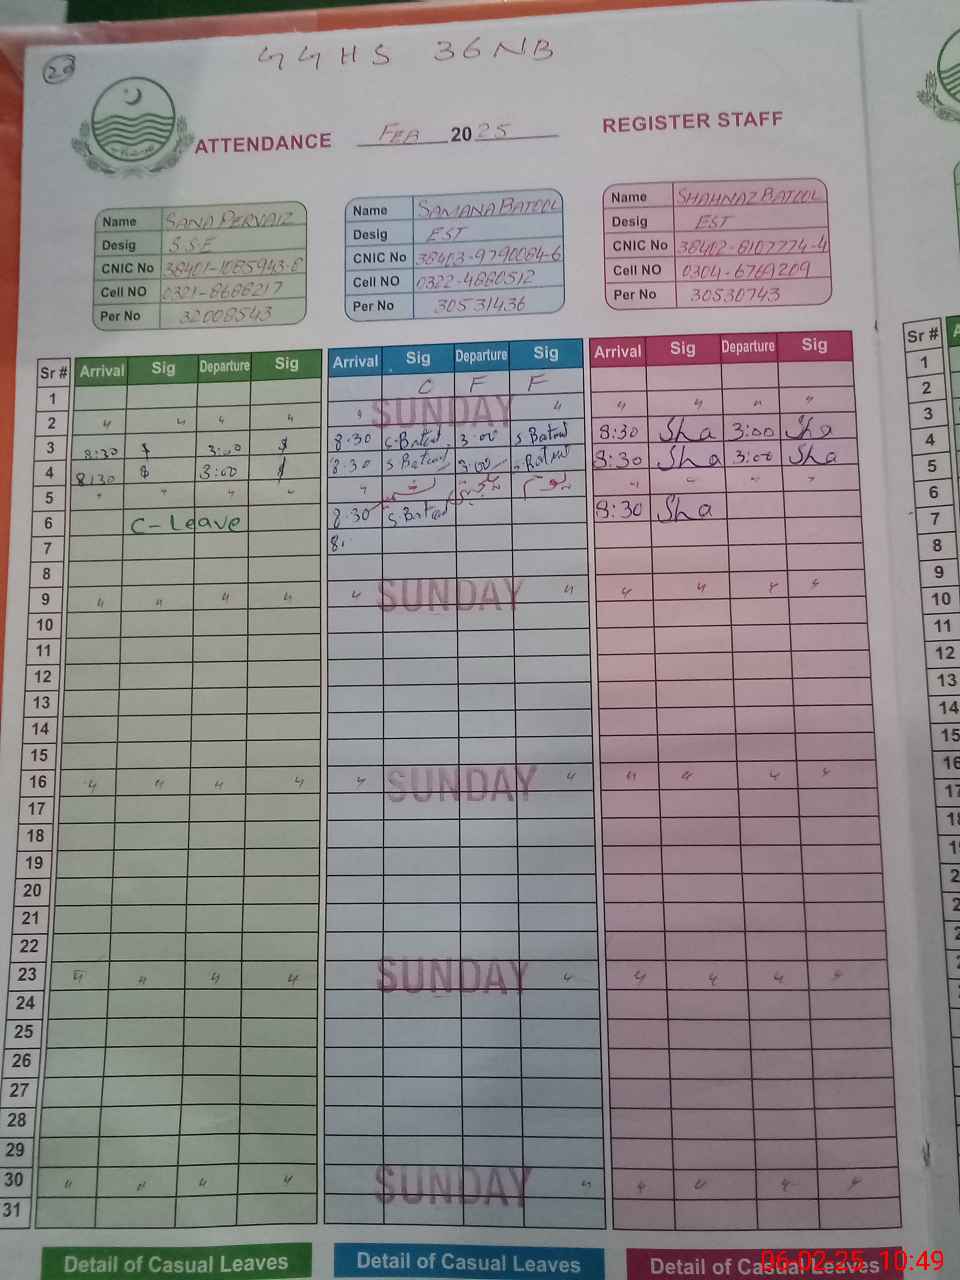 20
GGHS 36NB
ATTENDANCE FEB 2025 REGISTER STAFF
Name SANA PERVAIZ
Desig S.S.E
CNIC No 38401-1085943-8
Cell NO 0321-8688217
Per No 32008543
Name SAMANA BATOOL
Desig EST
CNIC No 38403-9790084-6
Cell NO 0322-4880512
Per No 30531436
Name SHAHNAZ BATOOL
Desig EST
CNIC No 38402-8107774-4
Cell NO 0304-6769209
Per No 30530743
Sr # Arrival Sig Departure Sig Arrival Sig Departure Sig Arrival Sig Departure Sig Sr #
1 C F F 1
2 " " " " " SUNDAY " " " " " 2
3 8:30 $ 3:00 $ 8:30 S.Batool 3:00 S Batool 8:30 Sha 3:00 Sha 3
4 8:30 $ 3:00 $ 8:30 S Batool 3:00 S.Batool 8:30 Sha 3:00 Sha 4
5 " " " " " یوم یکجہتی کشمیر " " " " 5
6 C-Leave 8:30 S.Batool 8:30 Sha 6
7 8. 7
8 8
9 " " " " " SUNDAY " " " " " 9
10 10
11 11
12 12
13 13
14 14
15 15
16 " " " " " SUNDAY " " " " " 16
17
18
19
20
21
22
23 " " " " SUNDAY " " " " "
24
25
26
27
28
29
30 " " " " SUNDAY " " " " "
31
Detail of Casual Leaves Detail of Casual Leaves Detail of Casual Leaves
06-02-25 10:49